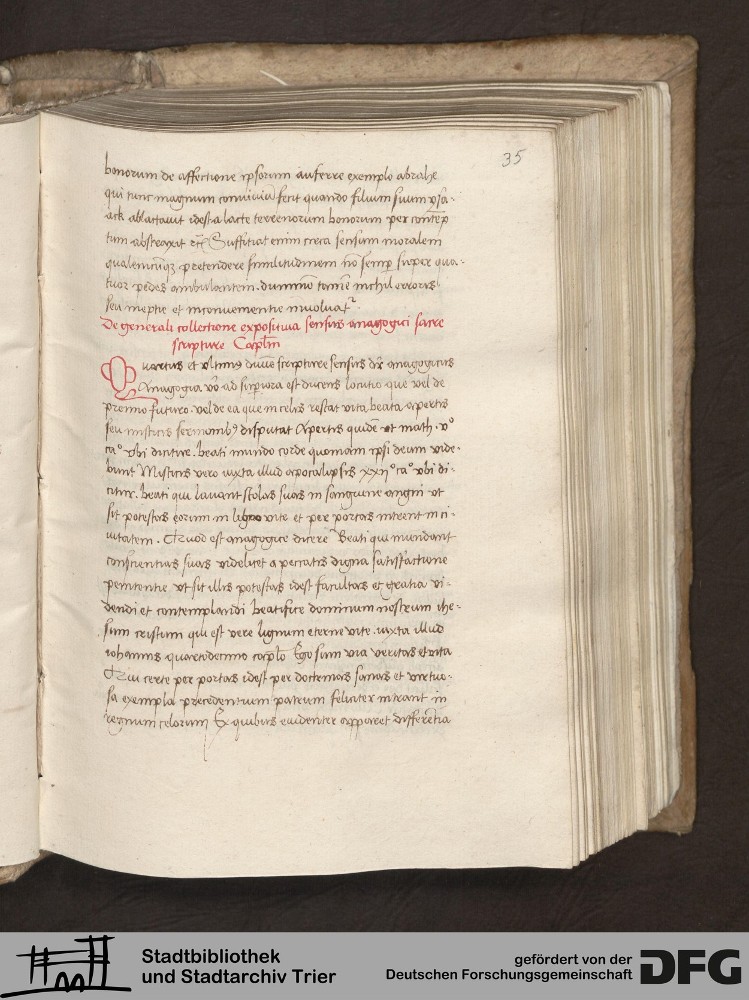 35
bonorum de affectione ipsorum auferre exemplo abrahe
qui tunc magnum conuiuiū fecit quando filium suum ysa-
ack ablactauit idest a lacte terrenorum bonorum per contēp
tum abstraxit Suffitiat enim circa sensum moralem
qualemcūqz pretendere similitudinem nō semp super qua-
tuor pedes ambulantem. dummō tamē nichil erroris
seu ineptie et inconuenientie inuoluat
De generali collectione expositiua sensus anagogici sacre
scripture Caplm
Quartus et vltimus diuine scripture sensus dr anagogicus
Anagogia vo ad superiora est ducens locutio que vel de
premio futuro. vel de ea que in celis restat vita beata apertis
seu misticis sermonibz disputat Apertis quidē vt math. vº
caº vbi dicitur. beati mundo corde quoniam ipsi deum vide-
bunt Misticis vero iuxta illud apocalipsis xxijº caº vbi di-
citur. beati qui lauant stolas suas in sanguine angni vt
sit potestas eorum in ligno vite et per portas intrent in ci-
uitatem. Quod est anagogice dicere Beati qui mundant
conscientias suas videlicet a peccatis digna satisfactione
penitentie vt sit illis potestas idest facultas et gratia vi-
dendi et contemplandi beatifice dominum nostrum ihe-
sum cristum qui est vere lignum eterne vite. iuxta illud
iohannis quartodecimo caplo Ego sum via veritas et vita
Qui certe per portas idest per doctrinas sanas et virtuo-
sa exempla precedentium patrum feliciter intrant in
regnum celorum Ex quibus euidenter apparet differētia
Stadtbibliothek
und Stadtarchiv Trier
gefördert von der
Deutschen Forschungsgemeinschaft
DFG